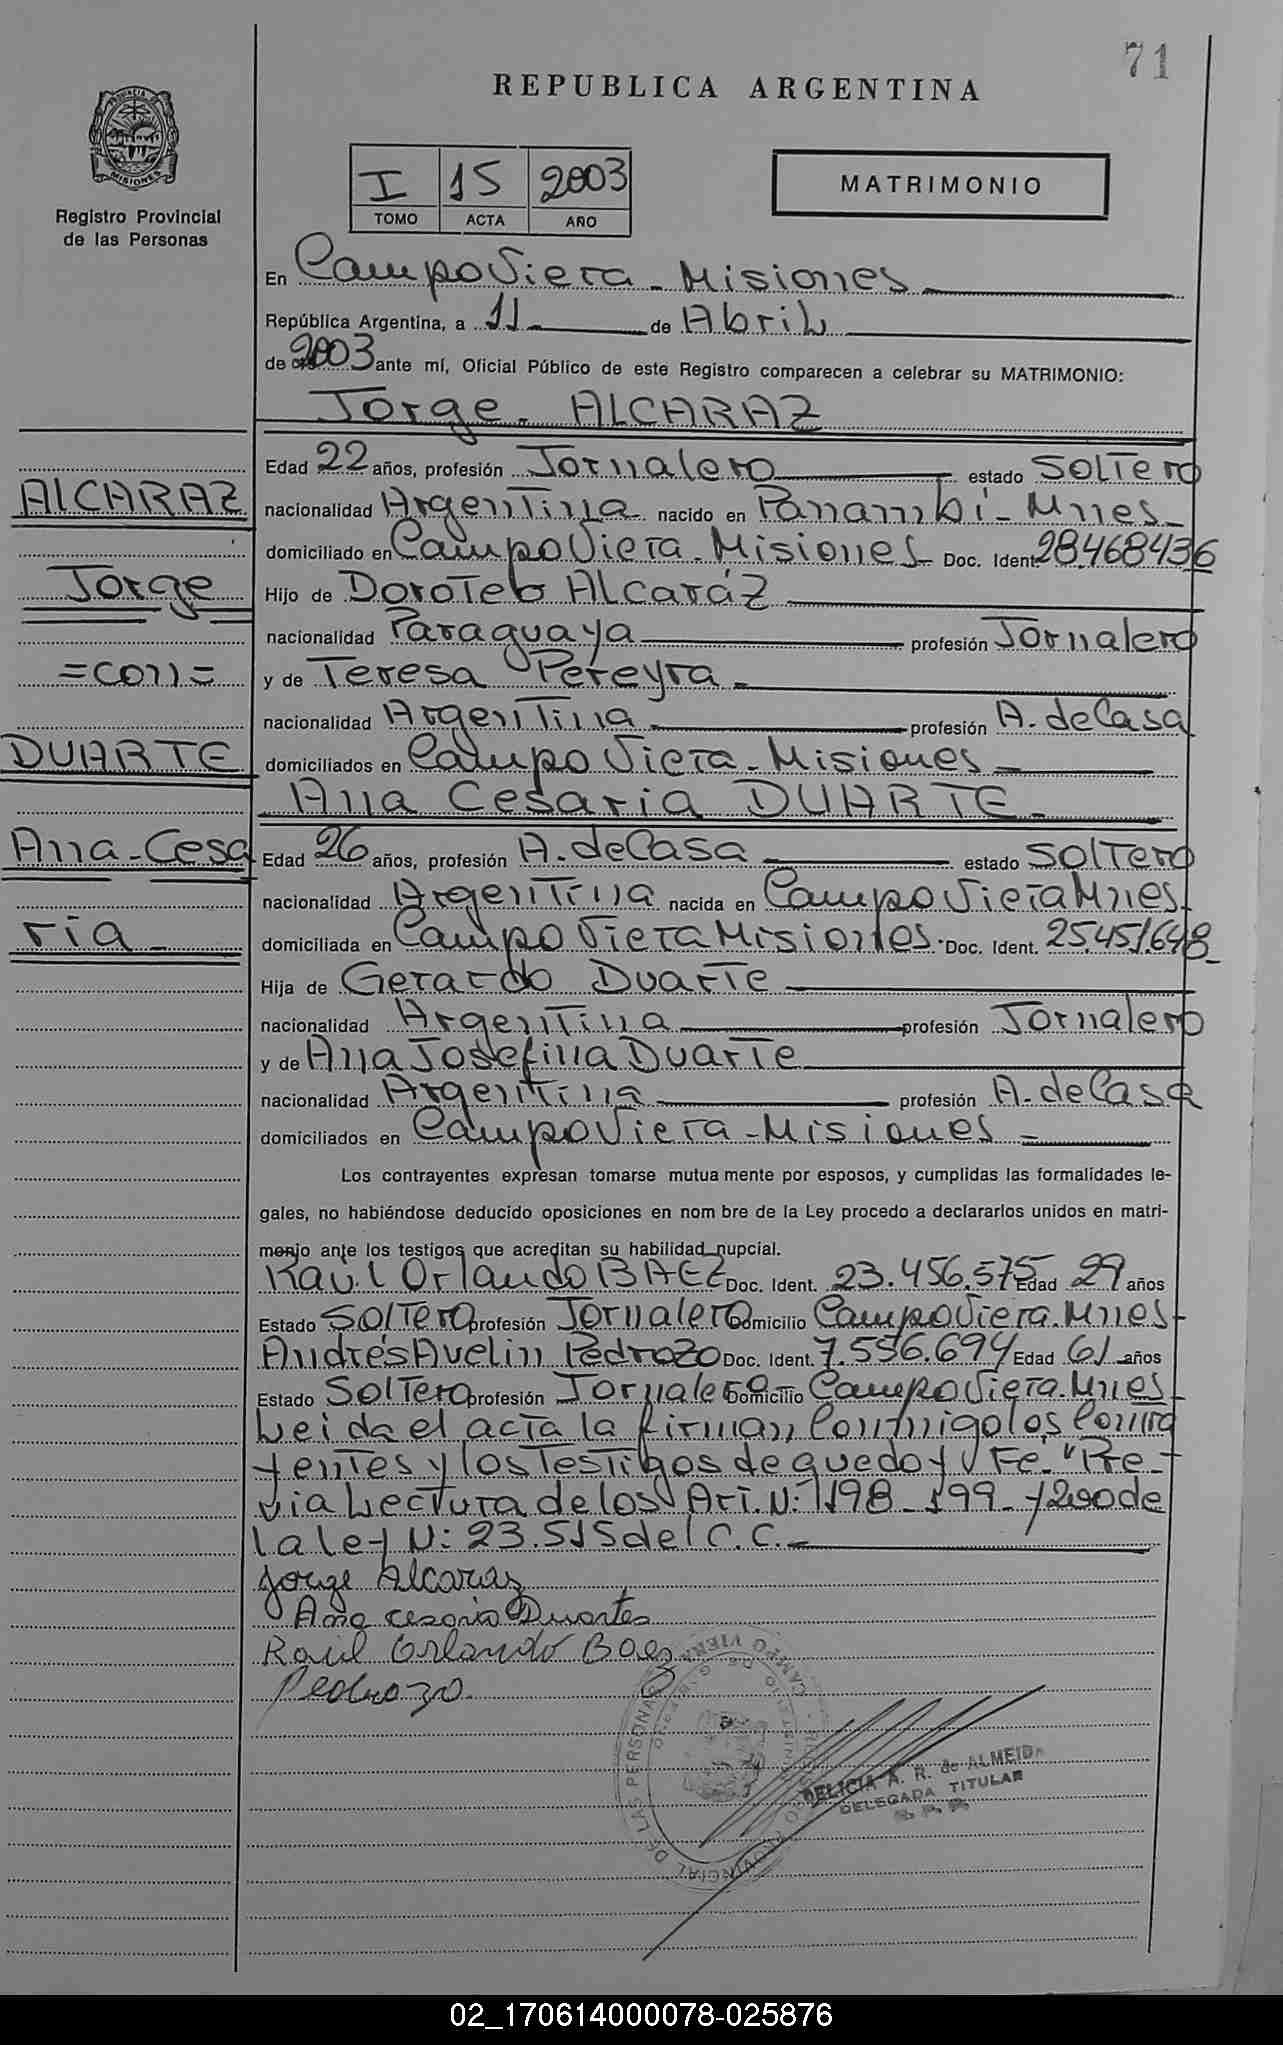 71
REPUBLICA ARGENTINA
PROVINCIA DE MISIONES
Registro Provincial
de las Personas
I 15 2003
TOMO ACTA AÑO
MATRIMONIO
En Campo Viera - Misiones
República Argentina, a 11 de Abril
de 2003 ante mí, Oficial Público de este Registro comparecen a celebrar su MATRIMONIO:
Jorge - ALCARAZ
Edad 22 años, profesión Jornalero estado SOLTERO
ALCARAZ
nacionalidad Argentina nacido en Panambí - Mnes -
domiciliado en Campo Viera - Misiones - Doc. Ident. 28.468436
Jorge
Hijo de Doroteo Alcaráz
nacionalidad Paraguaya profesión Jornalero
=con=
y de Teresa Pereyra -
nacionalidad Argentina profesión A. de Casa
DUARTE
domiciliados en Campo Viera - Misiones -
Ana Cesaria DUARTE -
Ana - Cesa
Edad 26 años, profesión A. de Casa estado Soltero
nacionalidad Argentina nacida en Campo Viera Mnes -
ria -
domiciliada en Campo Viera Misiones - Doc. Ident. 25.451.648 -
Hija de Gerardo Duarte
nacionalidad Argentina profesión Jornalero
y de Ana Josefina Duarte
nacionalidad Argentina profesión A. de Casa
domiciliados en Campo Viera - Misiones -
Los contrayentes expresan tomarse mutua mente por esposos, y cumplidas las formalidades le-
gales, no habiéndose deducido oposiciones en nom bre de la Ley procedo a declararlos unidos en matri-
monio ante los testigos que acreditan su habilidad nupcial.
Raúl Orlando BAEZ Doc. Ident. 23.456.575 Edad 29 años
Estado Soltero profesión Jornalero Domicilio Campo Viera. Mnes -
Andrés Avelin Pedrozo Doc. Ident. 7.556.694 Edad 61 años
Estado Soltero profesión Jornalero - Domicilio Campo Viera. Mnes -
Leida el acta la firman Conmigo los Contra
yentes y los Testigos de que doy Fé. "Pre -
via Lectura de los Art. N: 198 - 199 - y 200 de
la ley N: 23.515 del C.C. -
Jorge Alcaraz
Ana cesaria Duartes
Raúl Orlando Baez
Pedrozo
DELICIA A. R. de ALMEIDA
DELEGADA TITULAR
R. P. P.
02_170614000078-025876